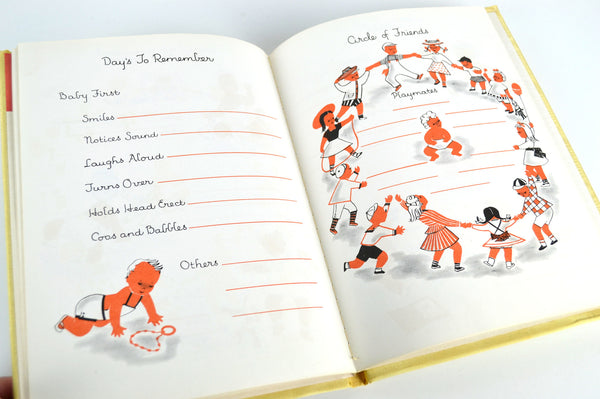 Day's To Remember
Baby First
Smiles
Notices Sound
Laughs Aloud
Turns Over
Holds Head Erect
Coos and Babbles
Others
Circle of Friends
Playmates